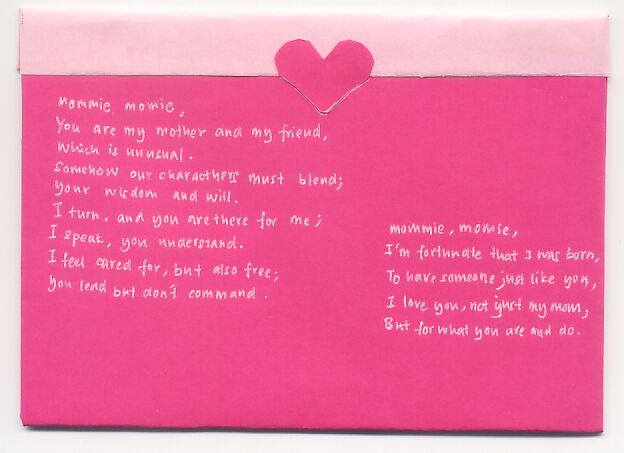 mommie momie,
You are my mother and my friend,
which is unusual.
Somehow our characthers must blend;
your wisdom and will.
I turn, and you are there for me;
I speak, you understand.
I feel cared for, but also free;
you lend but don't command.
mommie, momie,
I'm fortunate that I was born,
To have someone just like you,
I love you, not just my mom,
But for what you are and do.